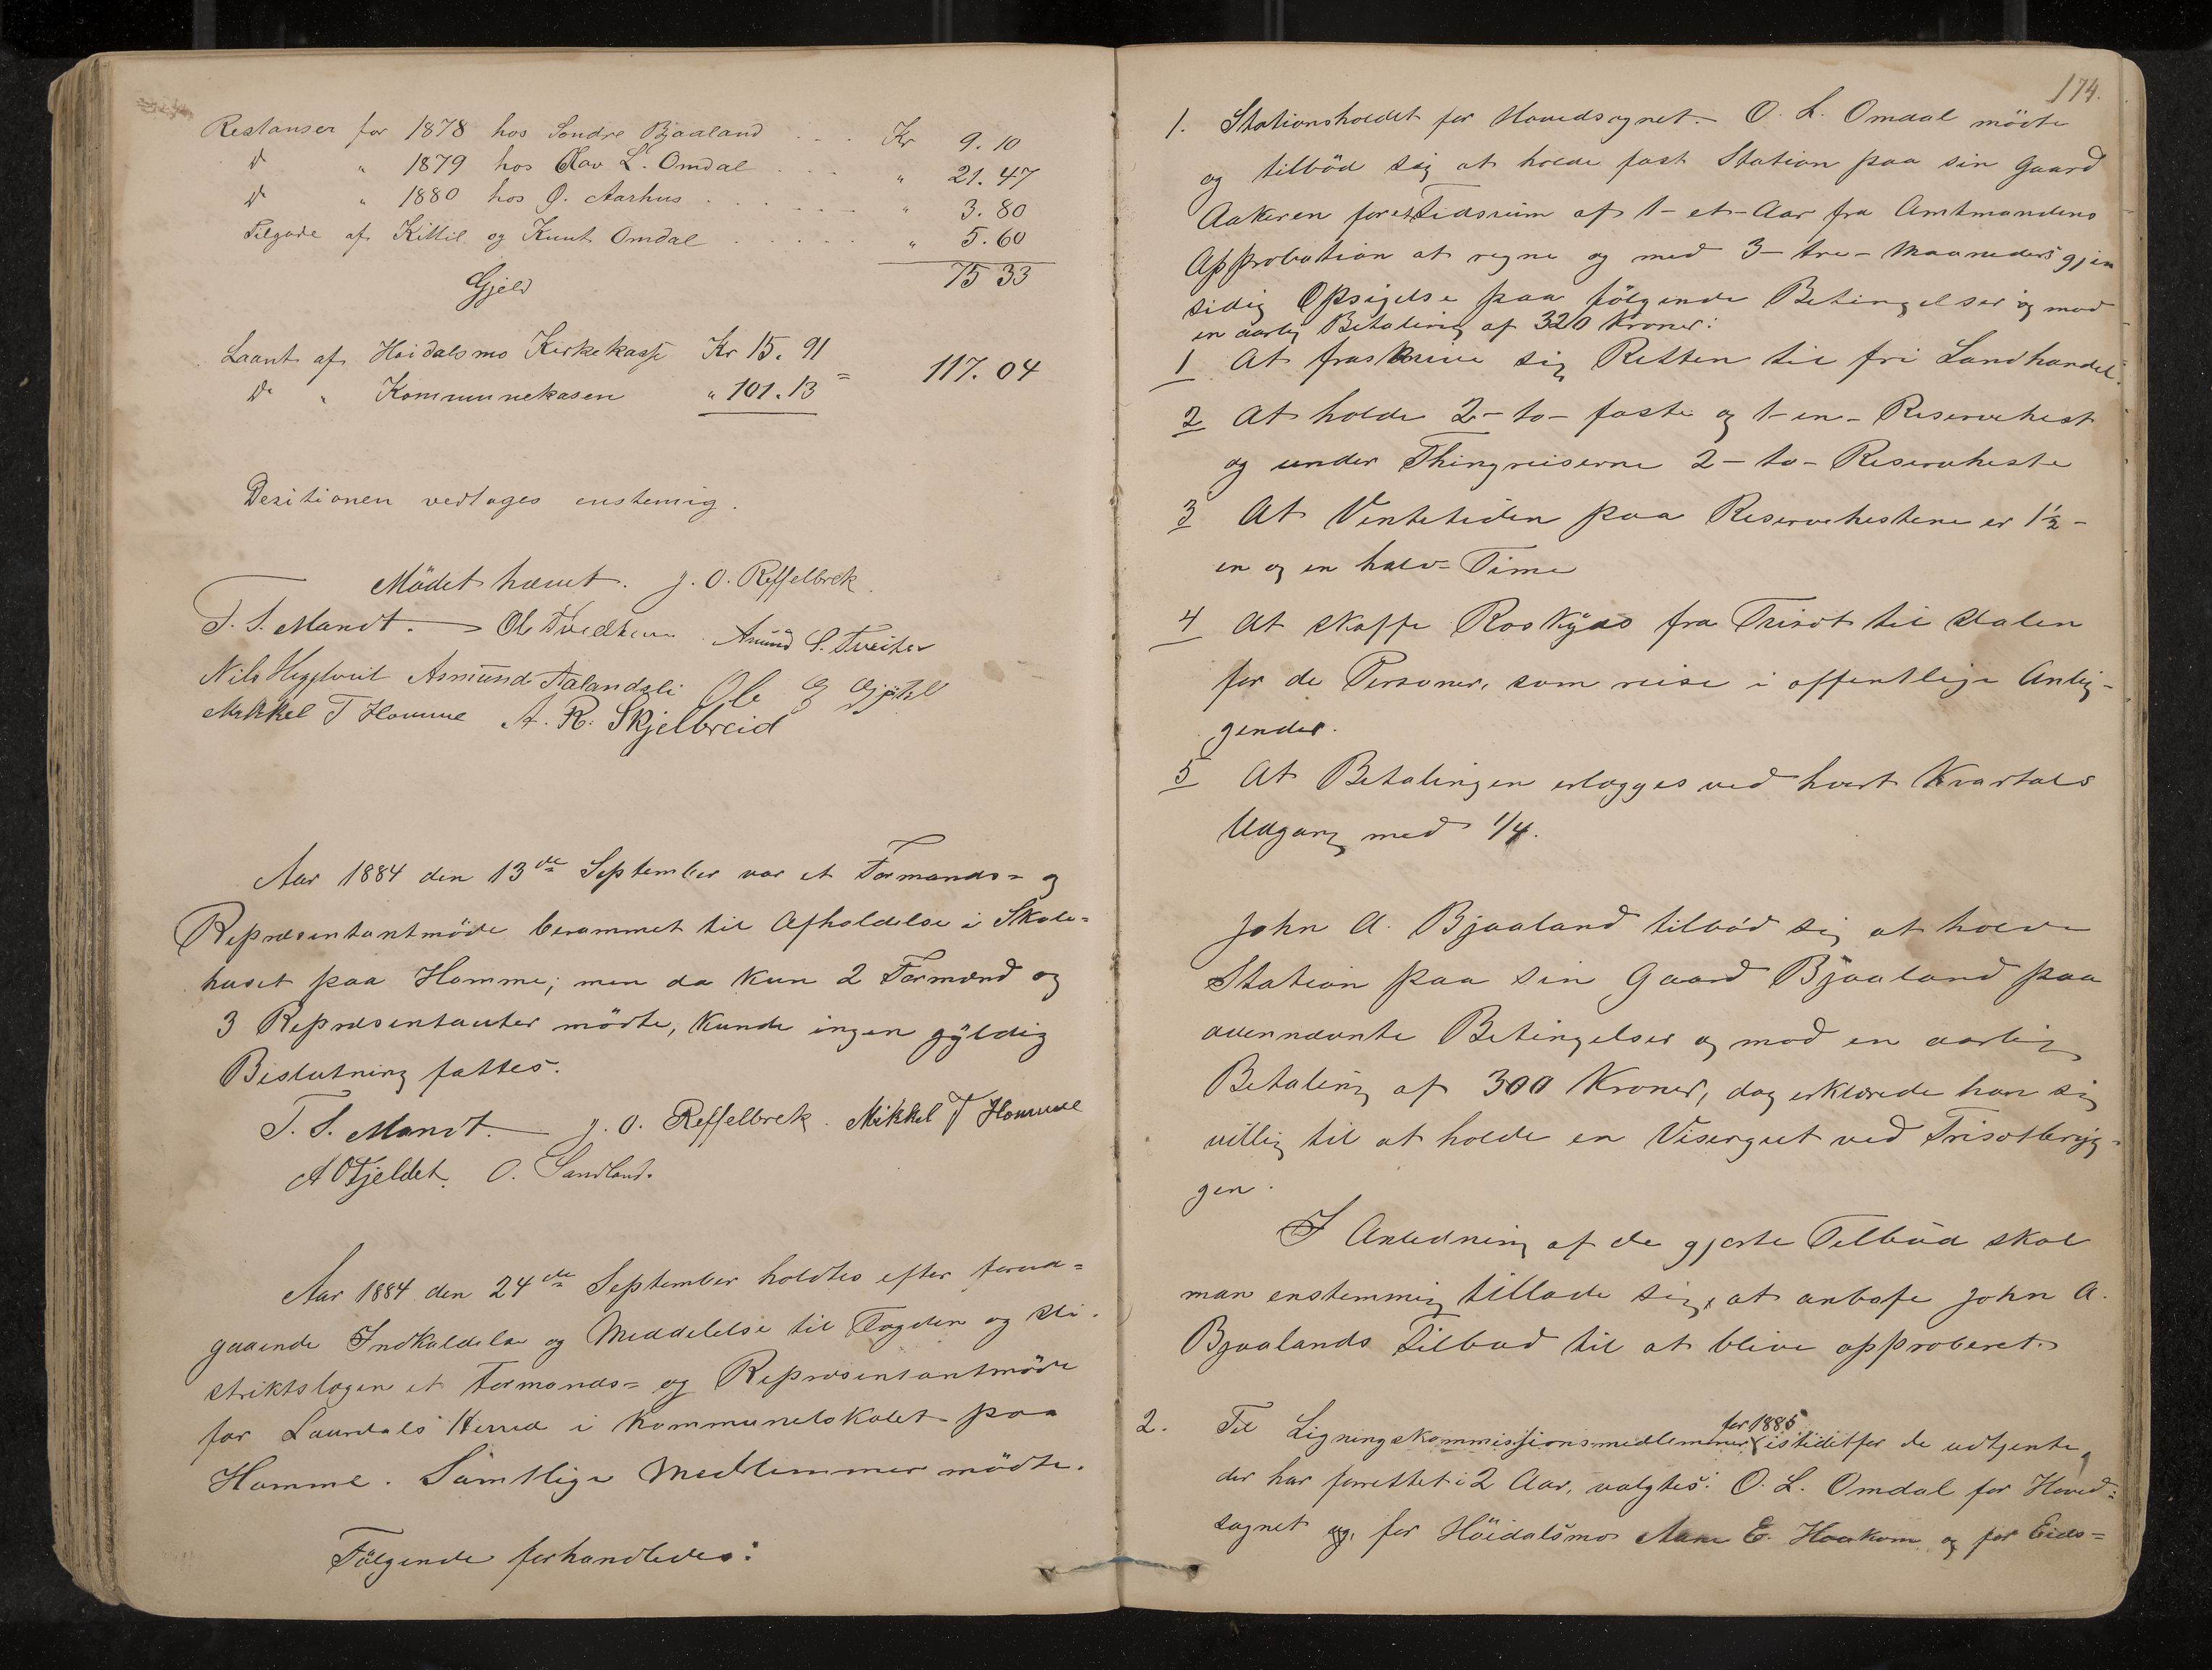 Restanser for 1878 hos Sondre Bjaaland . . . Kr 9.10
d " 1879 hos Olav L. Omdal . . . " 21.47
d " 1880 hos O. Aarhus . . . . . . " 3.80
Tilgode af Kittil og Knut Omdal . . . . . " 5.60
75 33
Gjeld
Laant af Høidalsmo Kirkekasse Kr 15.91
Do " Kommunekasen " 101.13 = 117.04
Desitionen vedtages enstemig.
Mødet hævet. J. O. Reffelbrek.
T. S. Mandt. Ole Tvedtene Asmund S. Tveiten
Nils Heggtveit Asmund Aalandsli Ole G Gjøtil
Mikkel T Homme A. R. Skjelbreid
Aar 1884 den 13de September var et Formands- og
Repræsentantmöde berammet til Afholdelse i Skole-
huset paa Homme; men da kun 2 Formænd og
3 Repræsentanter mödte, kunde ingen gyldig
Beslutning fattes.
T. S. Mandt. J. O. Reffelbrek. Mikkel T Homme
A O Fjeldet. O. Sandland.
Aar 1884 den 24de September holdtes efter forud-
gaaende Indkaldelse og Meddelelse til Fogden og Di-
striktslægen et Formands- og Repræsentantmöde
for Laurdals Herred i Kommunelokalet paa
Homme. Samtlige Medlemmer mödte.
Fölgende forhandledes:
174.
1. Stationsholdet for Hovedsognet. O. L. Omdal mödte
og tilböd sig at holde fast Station paa sin Gaard
Aakeren for et Tidsrum af 1-et-Aar fra Amtmandens
Approbation at regne og med 3-tre-Maaneders gjen
sidig Opsigelse paa fölgende Betingelser og mod
en aarlig Betaling af 320 Kroner:
1 At fraskrive sig Retten til fri Landhandel.
2 At holde 2-to- faste og 1-en- Reservehest
og under Thingreiserne 2-to- Reserveheste
3 At Ventetiden paa Reservehestene er 1½-
en og en halv- Time
4 At skaffe Roskyds fra Trisöt til Dalen
for de Personer, som reise i offentlige Anlig-
gender.
5 At Betalingen erlægges ved hvert Kvartals
Udgang med 1/4.
John A. Bjaaland tilböd sig at holde
Station paa sin Gaard Bjaaland paa
ovennævnte Betingelser og mod en aarlig
Betaling af 300 Kroner, dog erklærede han sig
villig til at holde en Visergut ved Trisötbryg-
gen.
I Anledning af de gjorte Tilbud skal
man enstemmig tillade sig, at anbefe John A.
Bjaalands Tilbud til at blive approberet.
2. Til Ligningskommissionsmedlemmer for 1885 istedetfor de udtjente,
der har forrettet i 2 Aar, valgtes: O. L. Omdal for Hoved-
sognet og for Höidalsmo Aanе E. Haakom og for Eids-